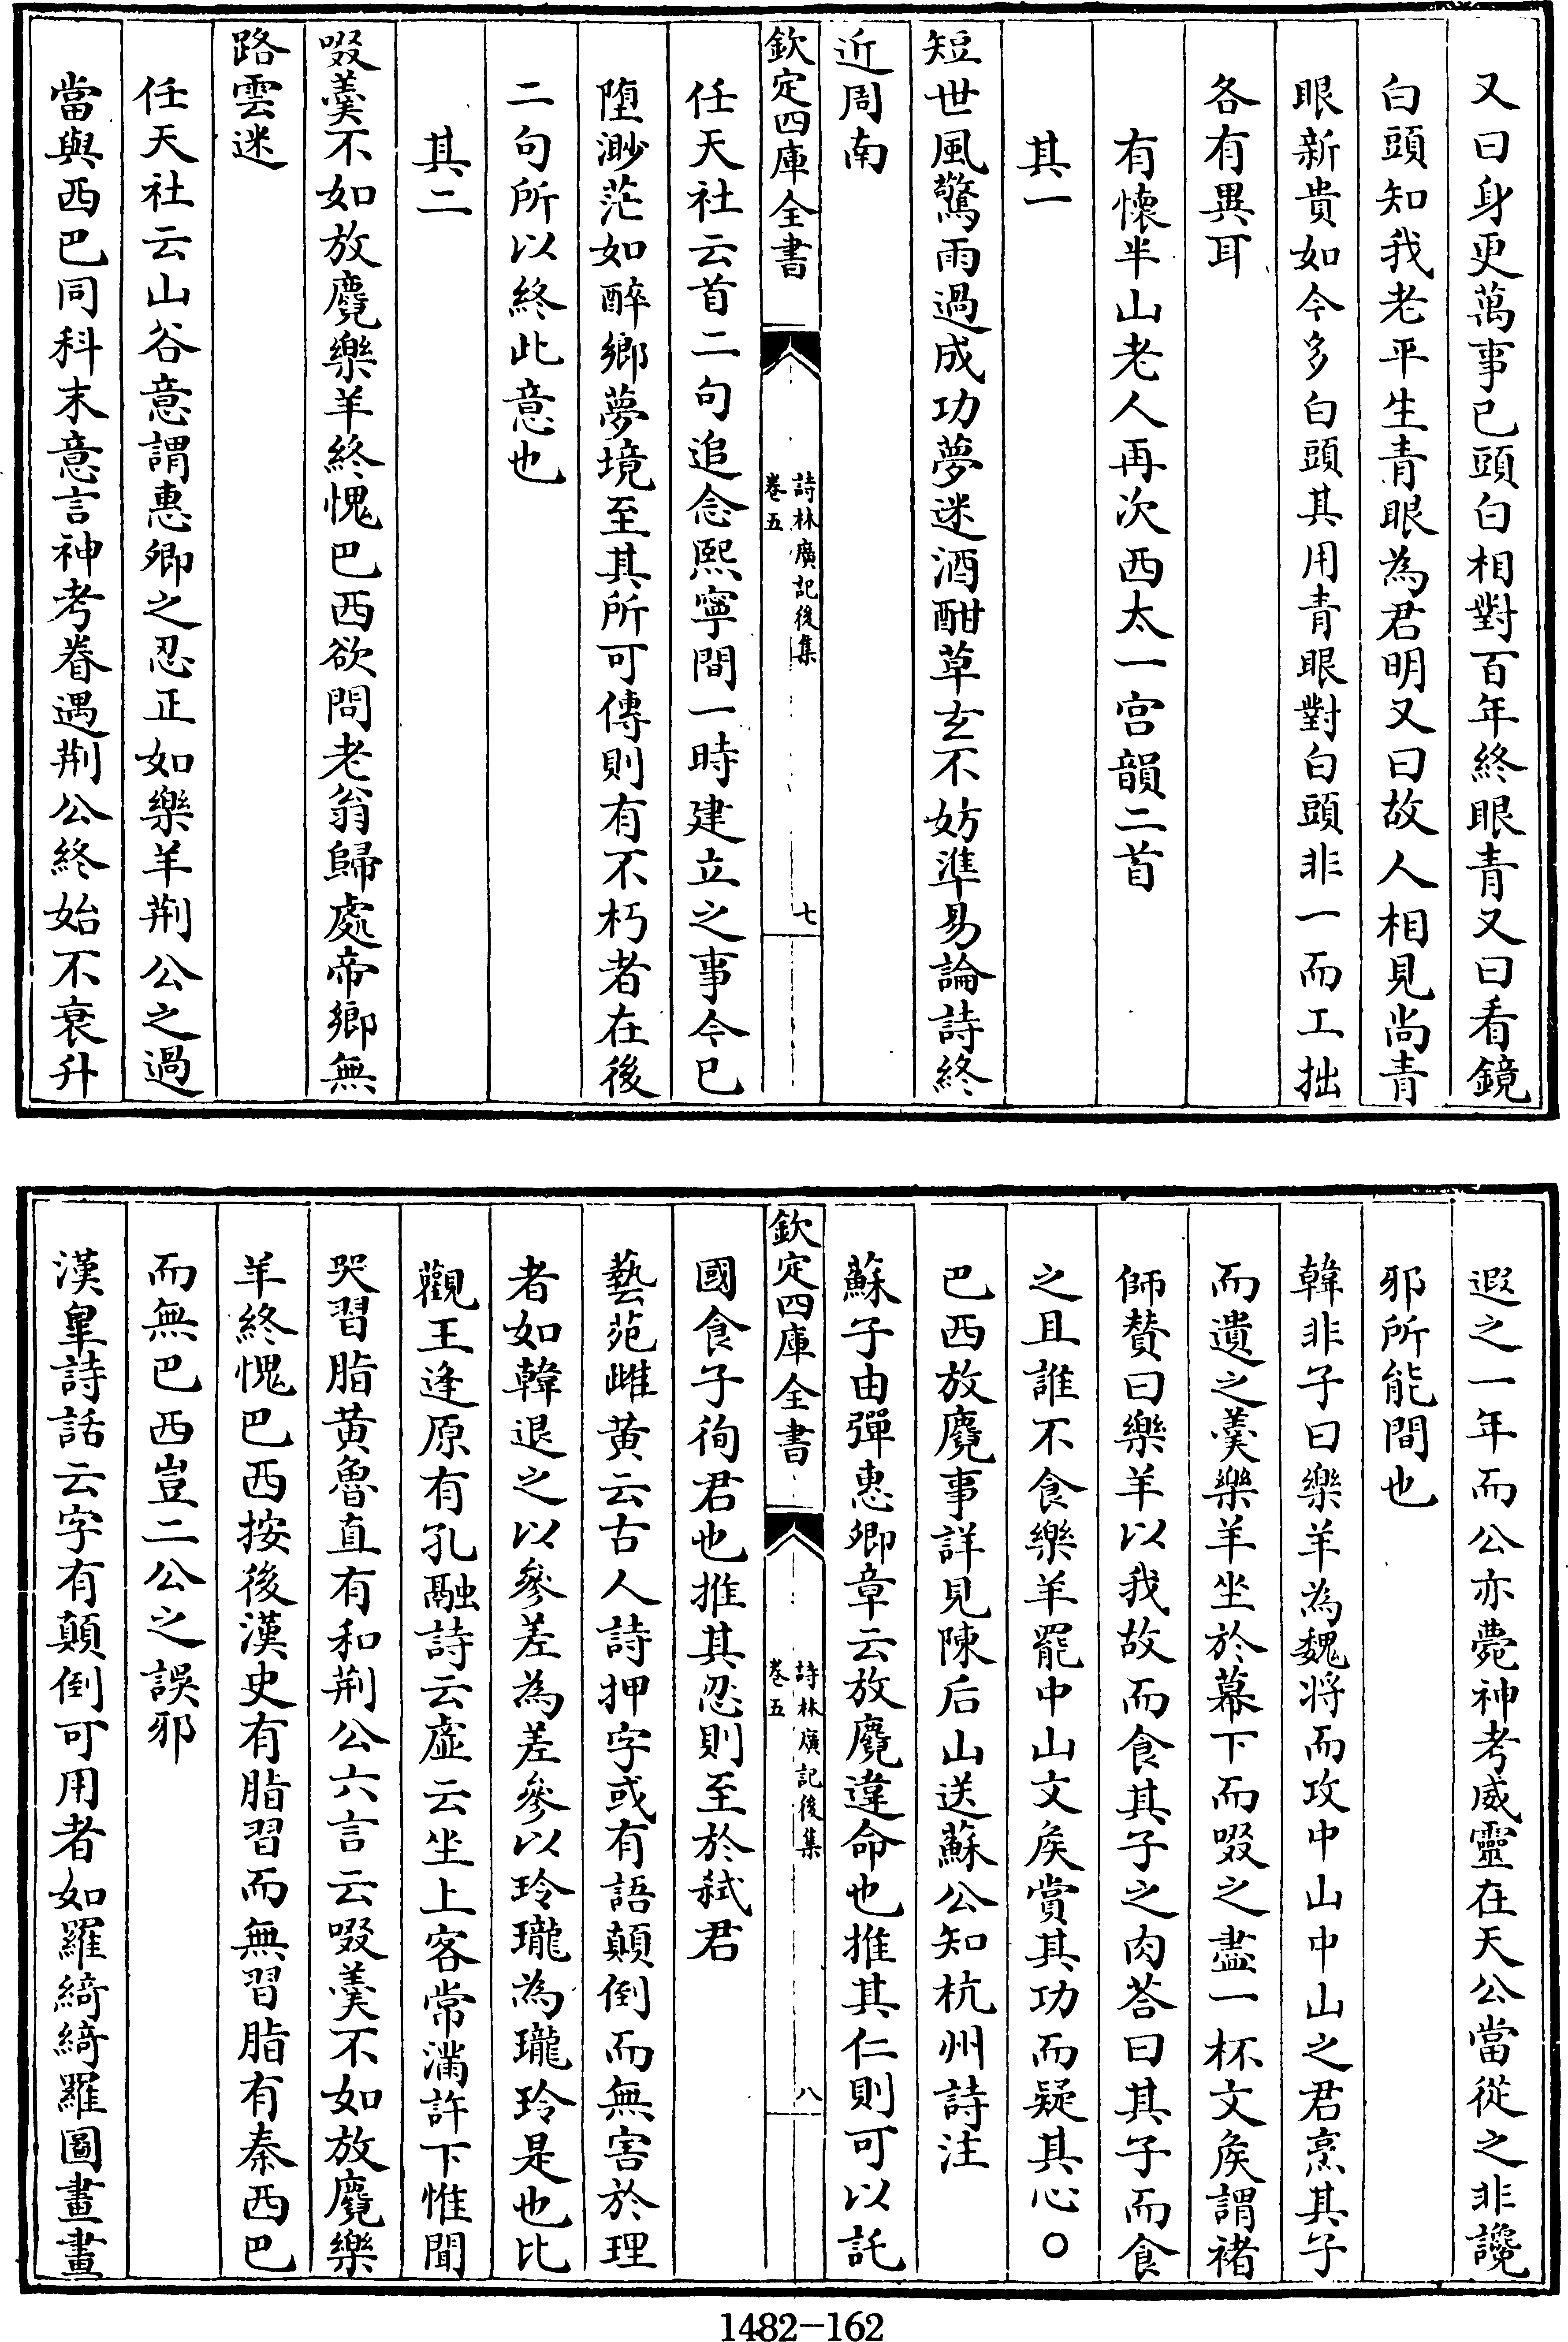 又曰身更萬事已頭白相對百年終眼青又曰看鏡
白頭知我老平生青眼為君明又曰故人相見尚青
眼新貴如今多白頭其用青眼對白頭非一而工拙
各有異耳
有懷半山老人再次西太一宮韻二首
其一
短世風驚雨過成功夢迷酒酣草玄不妨準易論詩終
近周南
欽定四庫全書
詩林廣記後集
卷五
七
任天社云首二句追念熙寧間一時建立之事今已
墮渺茫如醉鄉夢境至其所可傳則有不朽者在後
二句所以終此意也
其二
啜羮不如放麑樂羊終愧巴西欲問老翁歸處帝鄉無
路雲迷
任天社云山谷意謂惠卿之忍正如樂羊荆公之過
當與西巴同科末意言神考眷遇荆公終始不衰升
遐之一年而公亦薨神考威靈在天公當從之非讒
邪所能間也
韓非子曰樂羊為魏將而攻中山中山之君烹其子
而遺之羮樂羊坐於幕下而啜之盡一杯文矦謂褚
師賛曰樂羊以我故而食其子之肉荅曰其子而食
之且誰不食樂羊罷中山文矦賞其功而疑其心○
巴西放麑事詳見陳后山送蘇公知杭州詩注
蘇子由彈惠卿章云放麑違命也推其仁則可以託
欽定四庫全書
詩林廣記後集
卷五
八
國食子徇君也推其忍則至於弒君
藝苑雌黄云古人詩押字或有語顛倒而無害於理
者如韓退之以參差為差參以玲瓏為瓏玲是也比
觀王逢原有孔融詩云虛云坐上客常滿許下惟聞
哭習脂黄魯直有和荆公六言云啜羮不如放麑樂
羊終愧巴西按後漢史有脂習而無習脂有秦西巴
而無巴西豈二公之誤邪
漢臯詩話云字有顛倒可用者如羅綺綺羅圖畫畫
1482-162